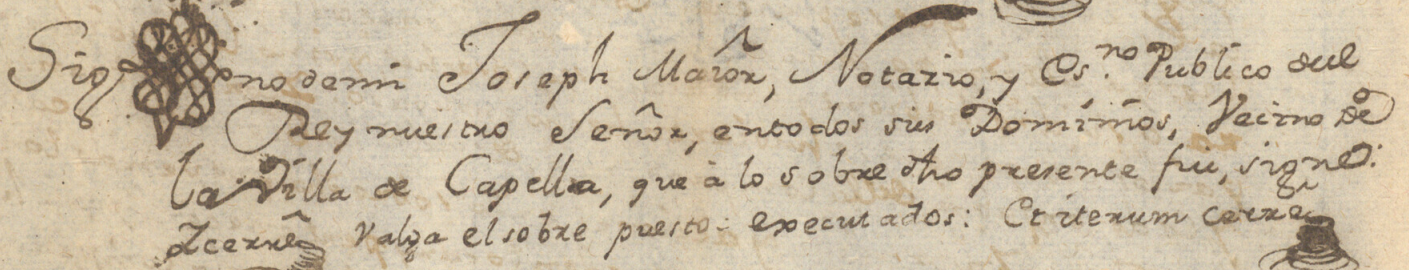 Sig no de mi Joseph Maior, Notario, y Es.no Publico del
Rey nuestro Señor, en todos sus Dominios, Vecino de
la Villa de Capella, que à lo sobre dho presente fui, signe:
Zcerre Valga el sobre puesto: executados: Et iterum cerre